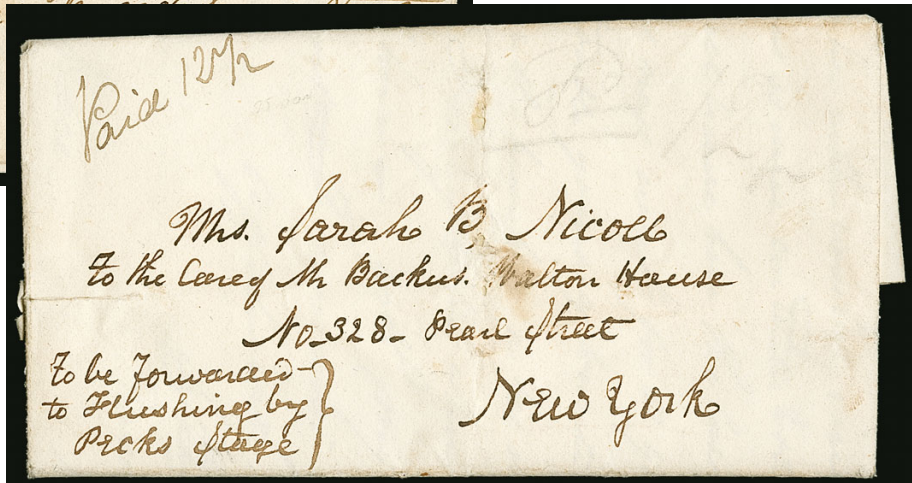 Paid 12 1/2
Mrs. Sarah B, Nicoll
To the Care of Mr Backus. Walton House
No_328_ Pearl Street
New York
To be forwarded
to Flushing by
Pecks Stage